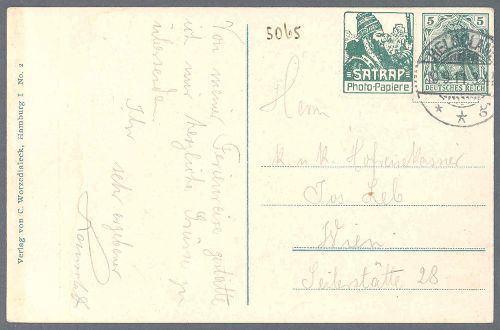 Verlag von C. Worzedialeck, Hamburg I No. 2
Von meiner Ferienreise gestatte
ich mir herzliche Grüsse zu
übersenden.
Ihr sehr ergebener
5065
SATRAP
Photo-Papiere
5 5
DEUTSCHES REICH
HELGOLAND
Herrn
k. u. k. Hof
Jos Leb
Wien
Seilerstätte 28